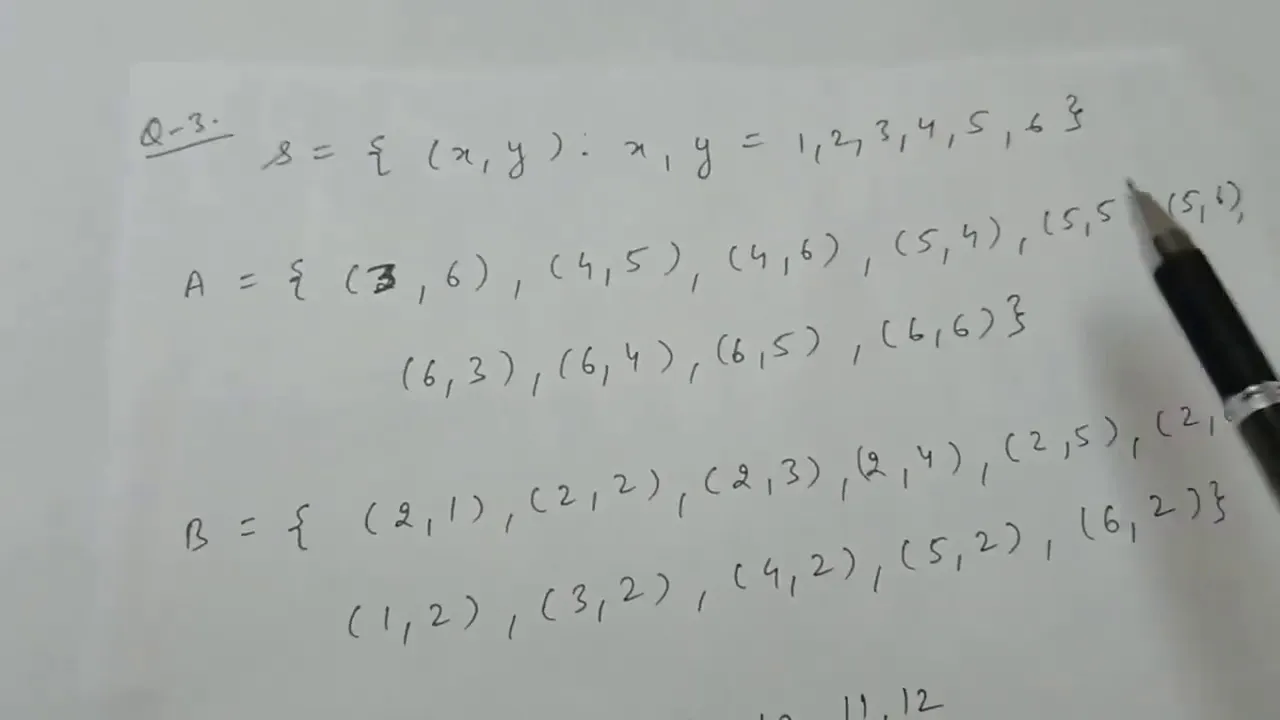 Q-3.
S = { (x, y) : x, y = 1, 2, 3, 4, 5, 6 }
A = { (3, 6), (4, 5), (4, 6), (5, 4), (5, 5 (5, 6),
(6, 3), (6, 4), (6, 5), (6, 6) }
B = { (2, 1), (2, 2), (2, 3), (2, 4), (2, 5), (2,
(1, 2), (3, 2), (4, 2), (5, 2), (6, 2) }
11, 12